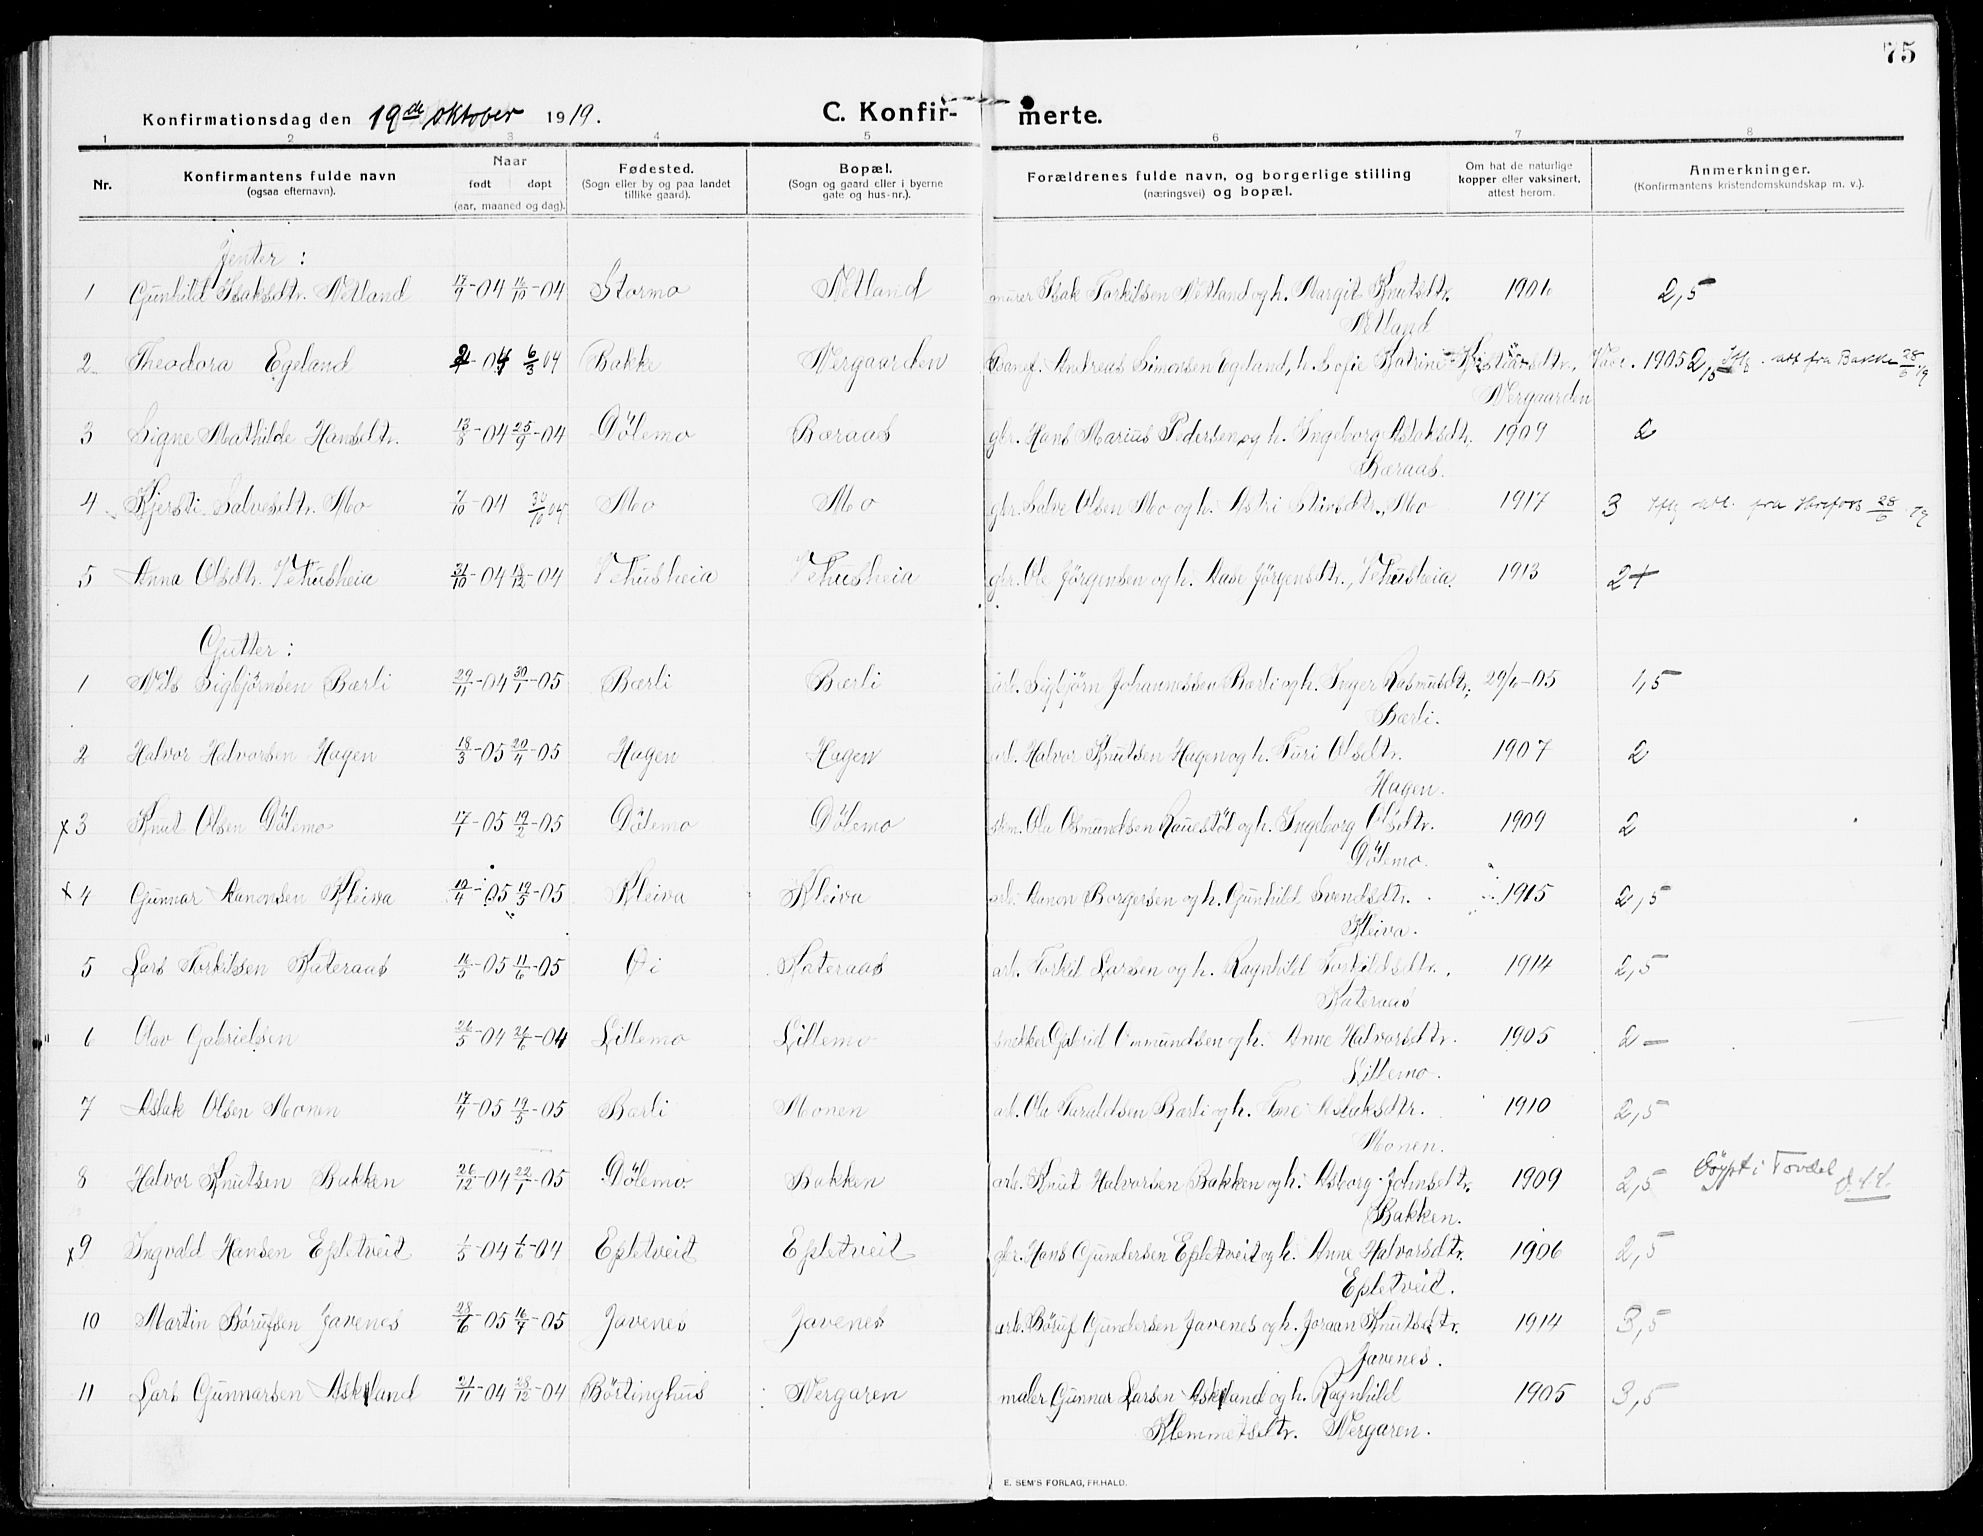 75
Konfirmationsdag den 19de oktober 1919.
C. Konfir- merte.
1 2 3 4 5 6 7 8
Nr. Konfirmantens fulde navn (ogsaa efternavn). Naar født døpt (aar, maaned og dag). Fødested. (Sogn eller by og paa landet tillike gaard). Bopæl. (Sogn og gaard eller i byerne gate og hus-nr.). Forældrenes fulde navn, og borgerlige stilling (næringsvei) og bopæl. Om hat de naturlige kopper eller vaksinert, attest herom. Anmerkninger. (Konfirmantens kristendomskundskap m. v.).
Jenter:
1 Gunhild Isaksdtr. Netland 17/9-04 16/10-04 Stormo Netland murer Isak Torkilsen Netland og h. Margit Knutsdtr. 1906 2,5
Netland
2 Theodora Egeland 04 6/3 04 Bakke Nergaarden Andreas Simonsen Egeland, h. Sofie Katrine Vacc. 1905 2,5 att fra Bakke 28/6 19
Nergaarden
3 Signe Mathilde Hansdtr. 13/8-04 25/9-04 Dölemo Bæraas gbr. Hans Marius Pedersen og h. Ingeborg Aslaksdtr. 1909 2
Bæraas.
4 Kjersti Salvesdtr. Mo 7/10-04 30/10 04 Mo Mo gbr. Salve Olsen Mo og h. Astri Mo 1917 3 att. fra 28/6 19
5 Anna Olsdtr. Vehusheia 31/10-04 18/12-04 Vehusheia Vehusheia gbr. Ole Jörgensen og h. Aase Jörgensdtr., Vehusheia. 1913 2+
Gutter:
1 Nils Sigbjörnsen Bærli 29/11-04 30/1-05 Bærli Bærli arb. Sigbjörn Johannessen Bærli og h. Inger Rasmusdtr. 29/6-05 1,5
Bærli.
2 Halvor Halvorsen Hagen 18/3-05 20/4-05 Hagen Hagen arb. Halvor Knutsen Hagen og h. Turi Olsdtr. 1907 2
Hagen.
x 3 Knut Olsen Dölemo 17/1-05 19/2-05 Dölemo Dölemo Ola Osmundsen Rauestöl og h. Ingeborg Olsdtr. 1909 2
Dölemo.
x 4 Gunnar Aanonsen Kleiva 10/4-05 19/5-05 Kleiva Kleiva arb. Aanon Borgersen og h. Gunhild Svendsdtr. 1915 2,5
Kleiva.
5 Lars Torkilsen Kateraas 16/5-05 11/6-05 Öi Kateraas arb. Torkil Larsen og h. Ragnhild Torkildsdtr. 1914 2,5
Kateraas
6 Olav Gabrielsen 26/5-04 26/6-04 Lillemo Lillemo snekker Gabriel Ommundsen og h. Anne Halvorsdtr. 1905 2-
Lillemo.
7 Aslak Olsen Monen 17/4-05 19/5-05 Bærli Monen arb. Ola Taraldsen Bærli og h. Tone Aslaksdtr. 1910 2,5
Monen.
8 Halvor Knutsen Bakken 26/12-04 22/1-05 Dölemo Bakken arb. Knut Halvorsen Bakken og h. Asborg Johnsdtr. 1909 2,5 Döypt i Tovdal
Bakken.
x 9 Ingvald Hansen Epletveit 1/5-04 1/6-04 Epletveit Epletveit gbr. Hans Gundersen Epletveit og h. Anne Halvorsdtr. 1906 2,5
Epletveit.
10 Martin Börufsen Javenes 28/6-05 16/7-05 Javenes Javenes arb. Böruf Gundersen Javenes og h. Joraan Knutsdtr. 1914 3,5
Javenes.
11 Lars Gunnarsen Askland 21/11-04 28/12-04 Börtinghus Nergaren maler Gunnar Larsen Askland og h. Ragnhild 1905 3,5
Klemmetsdtr. Nergaren.
E. SEM'S FORLAG, FR.HALD.